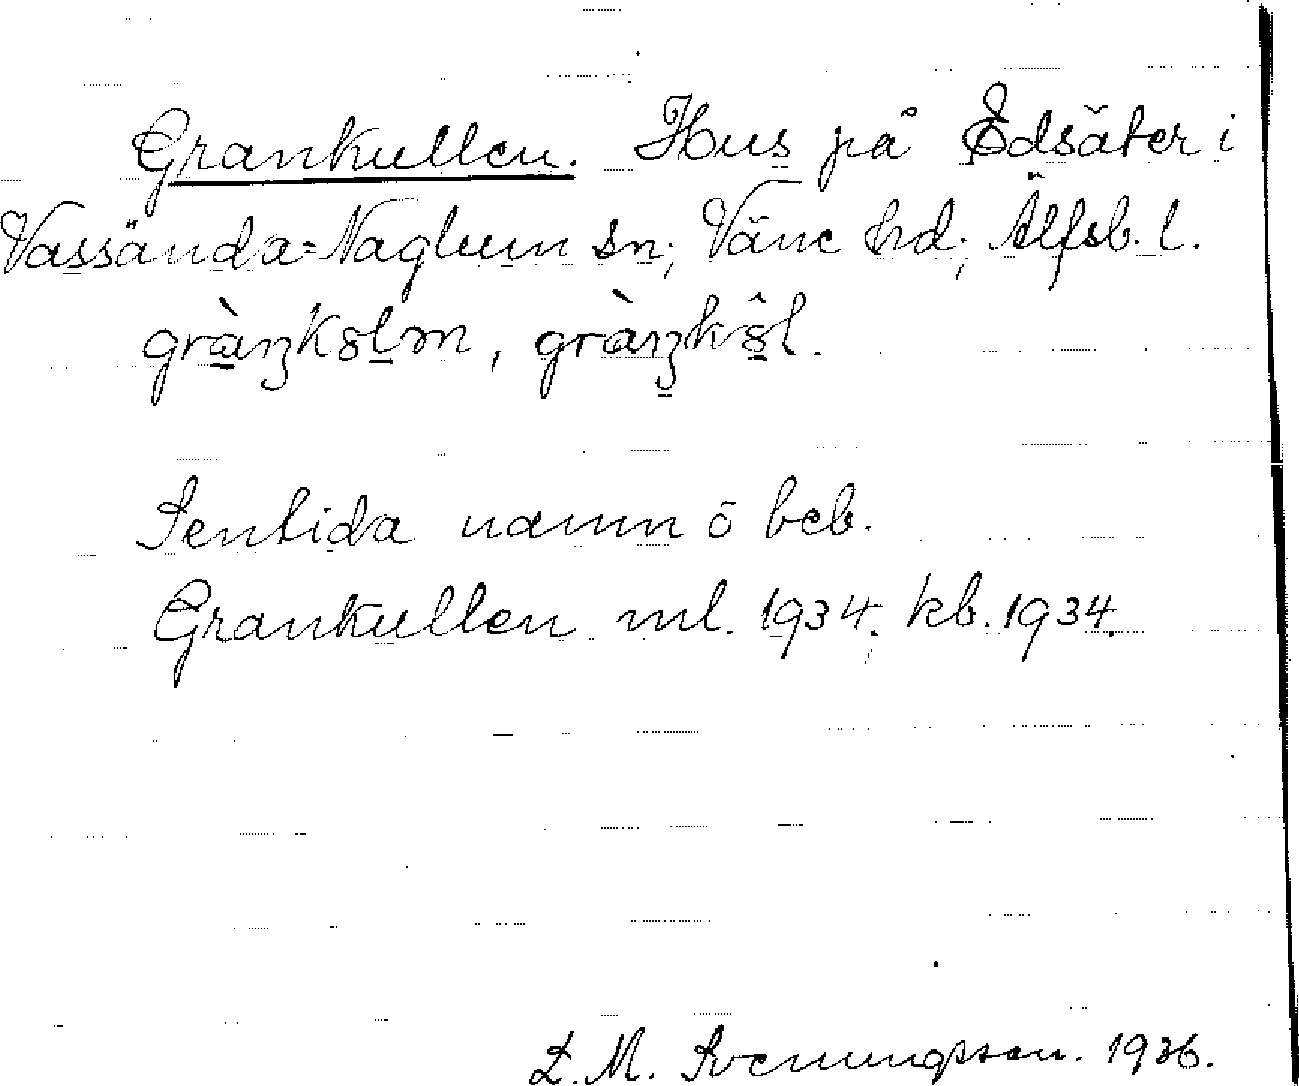 Grankullen. Hus på Edsäter i
Vassända=Naglum sn; Väne hd; Älfsb. l.
gràŋkȣlm, gràŋkȣ̂l.
Sentida namn o beb.
Grankullen ml. 1934; kb. 1934.
L. M. Svenungsson. 1936.